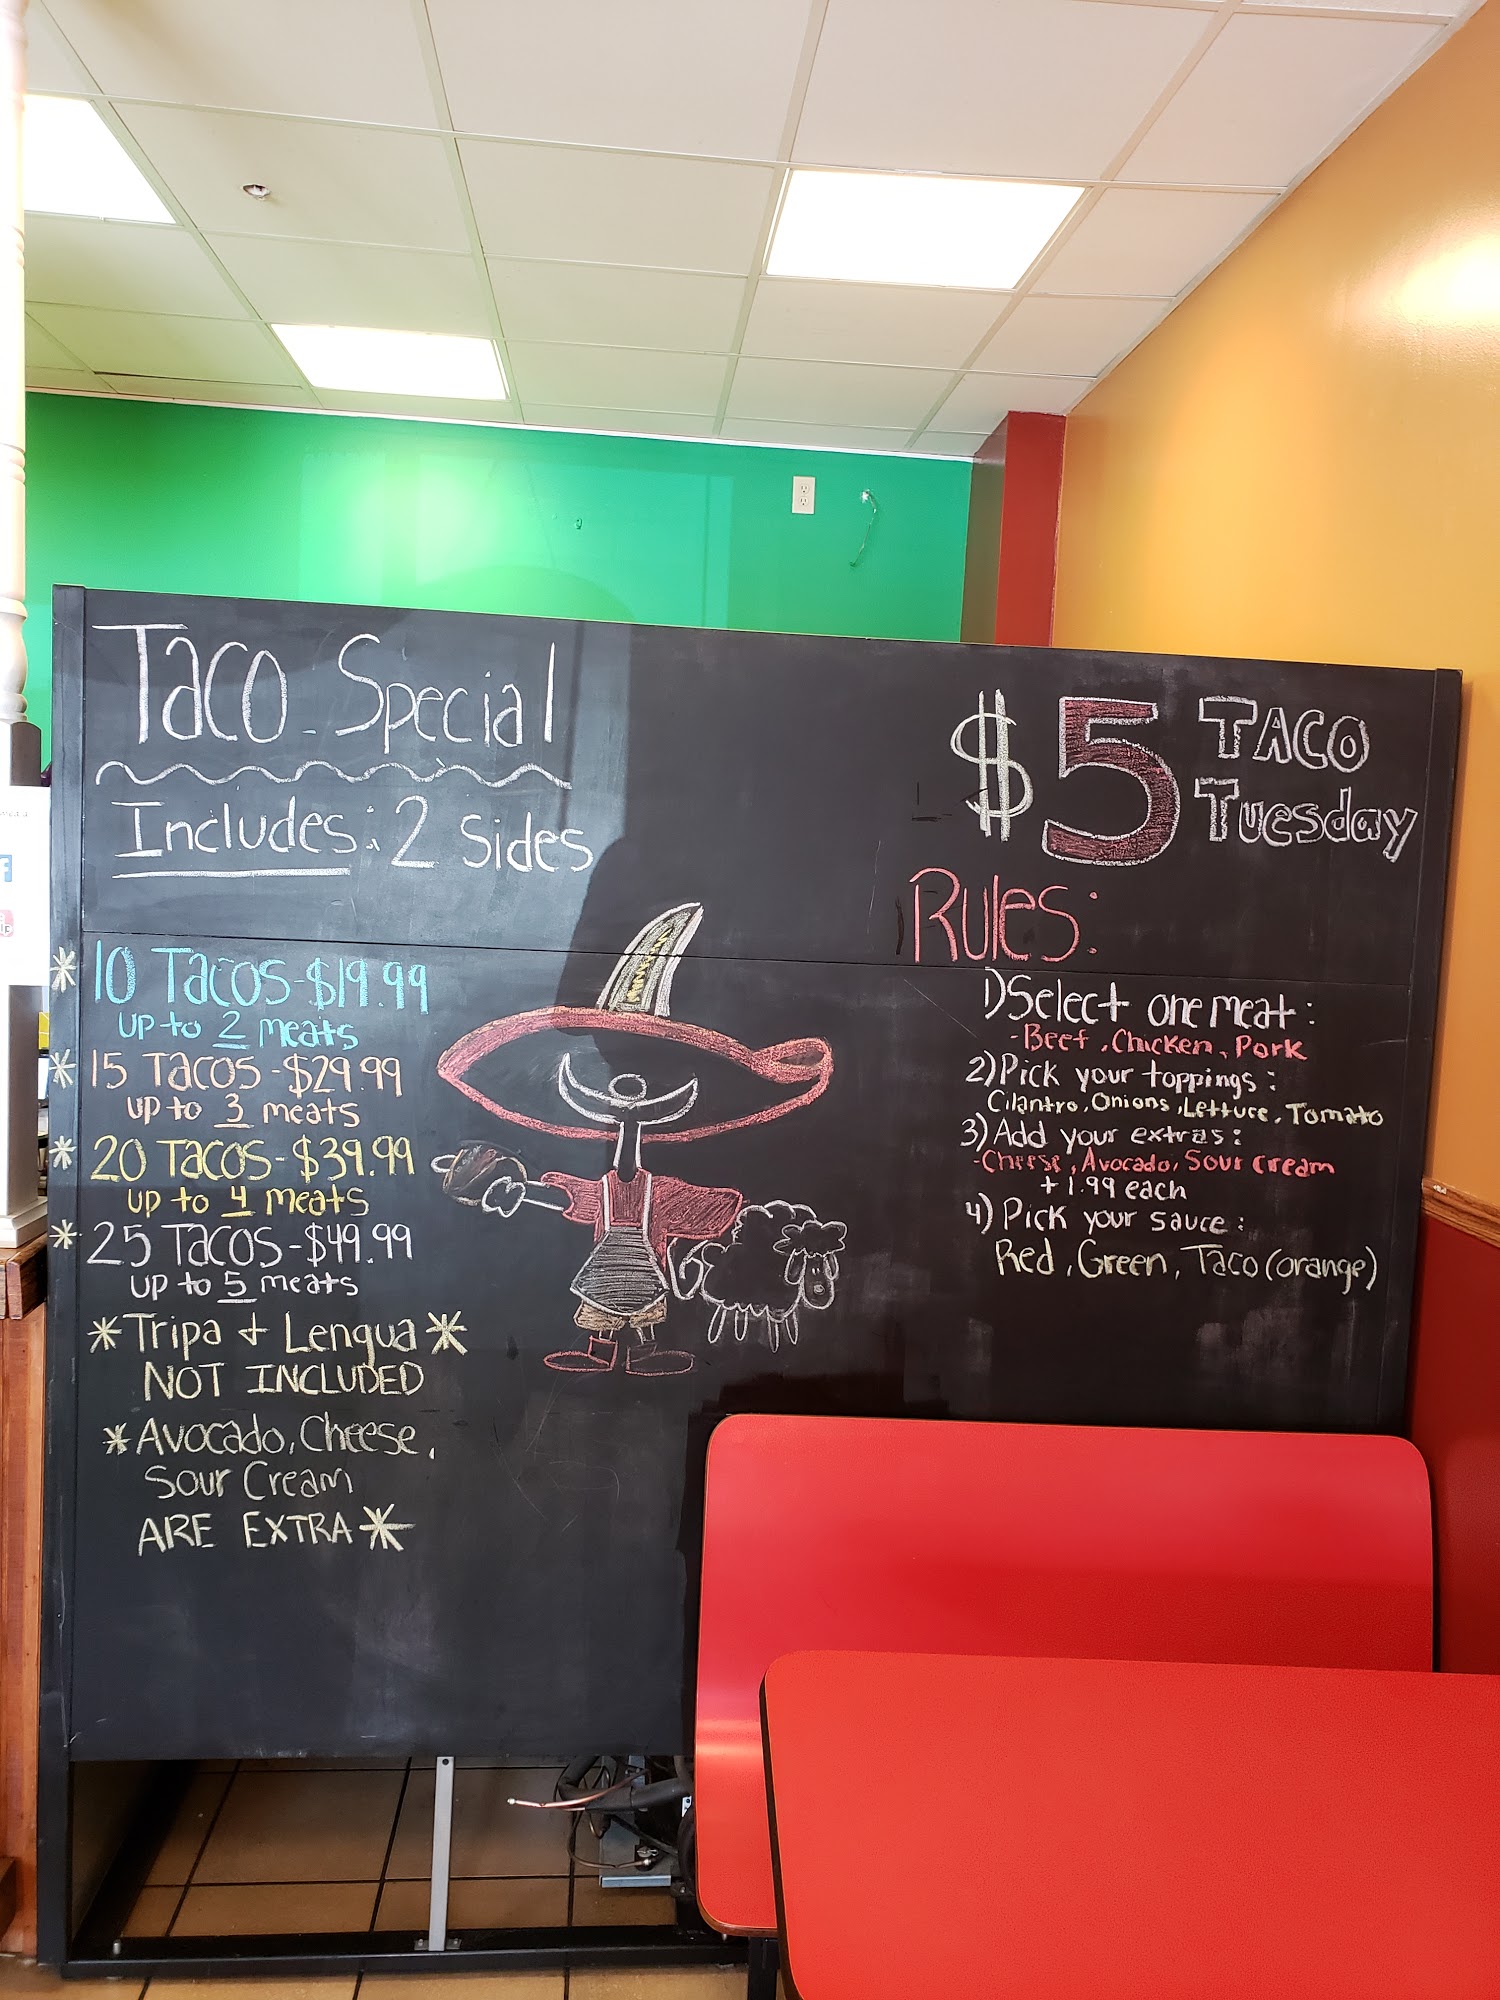 Taco Special
Includes: 2 sides
* 10 Tacos - $19.99
up to 2 meats
* 15 Tacos - $29.99
up to 3 meats
* 20 Tacos - $39.99
up to 4 meats
* 25 Tacos - $49.99
up to 5 meats
* Tripa + Lengua *
NOT INCLUDED
* Avocado, Cheese,
Sour Cream
ARE EXTRA *
$5 TACO
Tuesday
Rules:
1) Select one meat:
- Beef, Chicken, Pork
2) Pick your toppings:
Cilantro, Onions, Lettuce, Tomato
3) Add your extras:
- Cheese, Avocado, Sour Cream
+ 1.99 each
4) Pick your sauce:
Red, Green, Taco (orange)